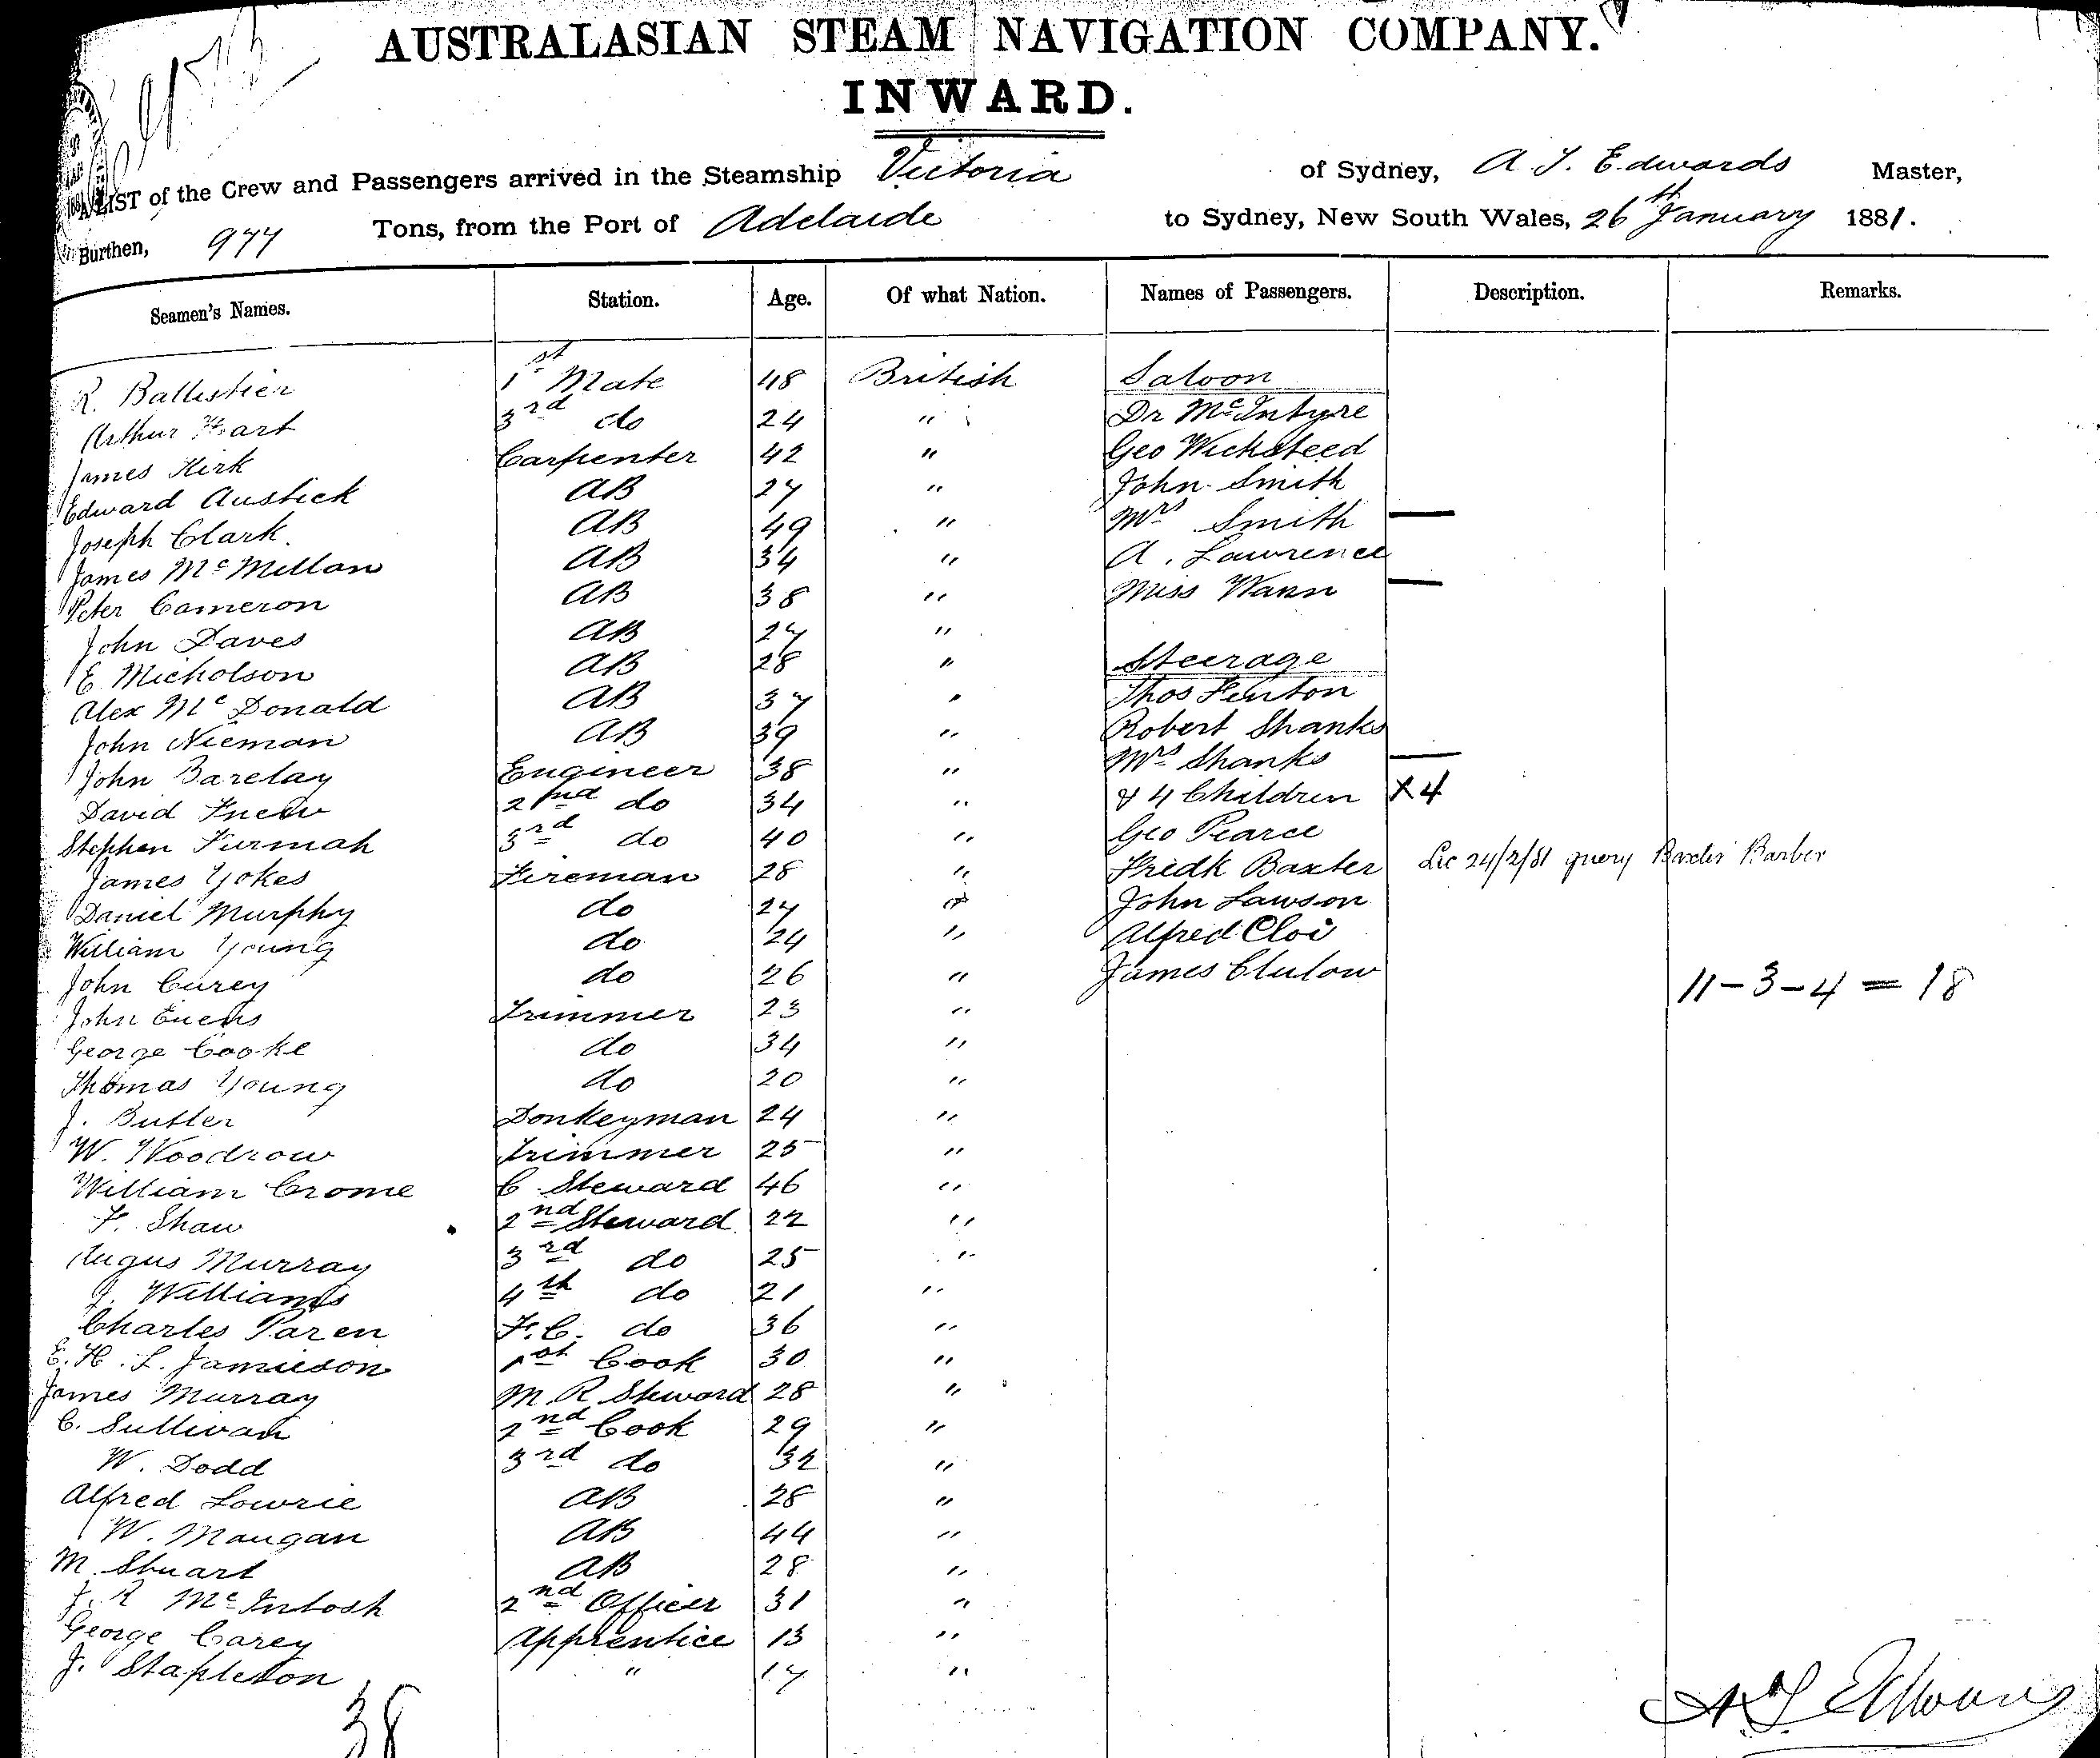 AUSTRALASIAN STEAM NAVIGATION COMPANY.
INWARD.
LIST of the Crew and Passengers arrived in the Steamship Victoria of Sydney, A. J. Edwards Master,
Burthen, 977 Tons, from the Port of Adelaide to Sydney, New South Wales, 26th January 1881.
Seamen's Names. Station. Age. Of what Nation. Names of Passengers. Description. Remarks.
R. Ballistier 1st Mate 48 British Saloon
Arthur Hart 3rd do 24 " Dr McIntyre
James Kirk Carpenter 42 " Geo Wicksteed
Edward Austick AB 27 " John Smith
Joseph Clark. AB 49 " Mrs Smith —
James McMillan AB 34 " A. Lawrence
Peter Cameron AB 38 " Miss Wann —
John Daves AB 27 "
E. Nicholson AB 28 " Steerage
Alex McDonald AB 37 " Thos Fenton
John Nieman AB 39 " Robert Shanks
John Barclay Engineer 38 " Mrs Shanks —
David Fnew 2nd do 34 " & 4 Children X4
Stephen Furmah 3rd do 40 " Geo Pearce
James Yokes Fireman 28 " Fredk Baxter Lic 24/2/81 query Baxter Barber
Daniel Murphy do 27 " John Lawson
William Young do 24 " Alfred Cloi
John Curey do 26 " James Clulow 11-3-4=18
John Euens Trimmer 23 "
George Cooke do 34 "
Thomas Young do 20 "
J. Butler Donkeyman 24 "
W. Woodrow Trimmer 25 "
William Crome C. Steward 46 "
F. Shaw 2nd Steward 22 "
Angus Murray 3rd do 25 "
J. Williams 4th do 21 "
Charles Paren F.C. do 36 "
E. H. L. Jamieson 1st Cook 30 "
James Murray M.R. Steward 28 "
C. Sullivan 2nd Cook 29 "
W. Dodd 3rd do 32 "
Alfred Lowrie AB 28 "
W. Maugan AB 44 "
M. Stuart AB 28 "
J. R McIntosh 2nd Officer 31 "
George Carey Apprentice 13 "
J. Stapleton " 17 "
38 A J Edwards